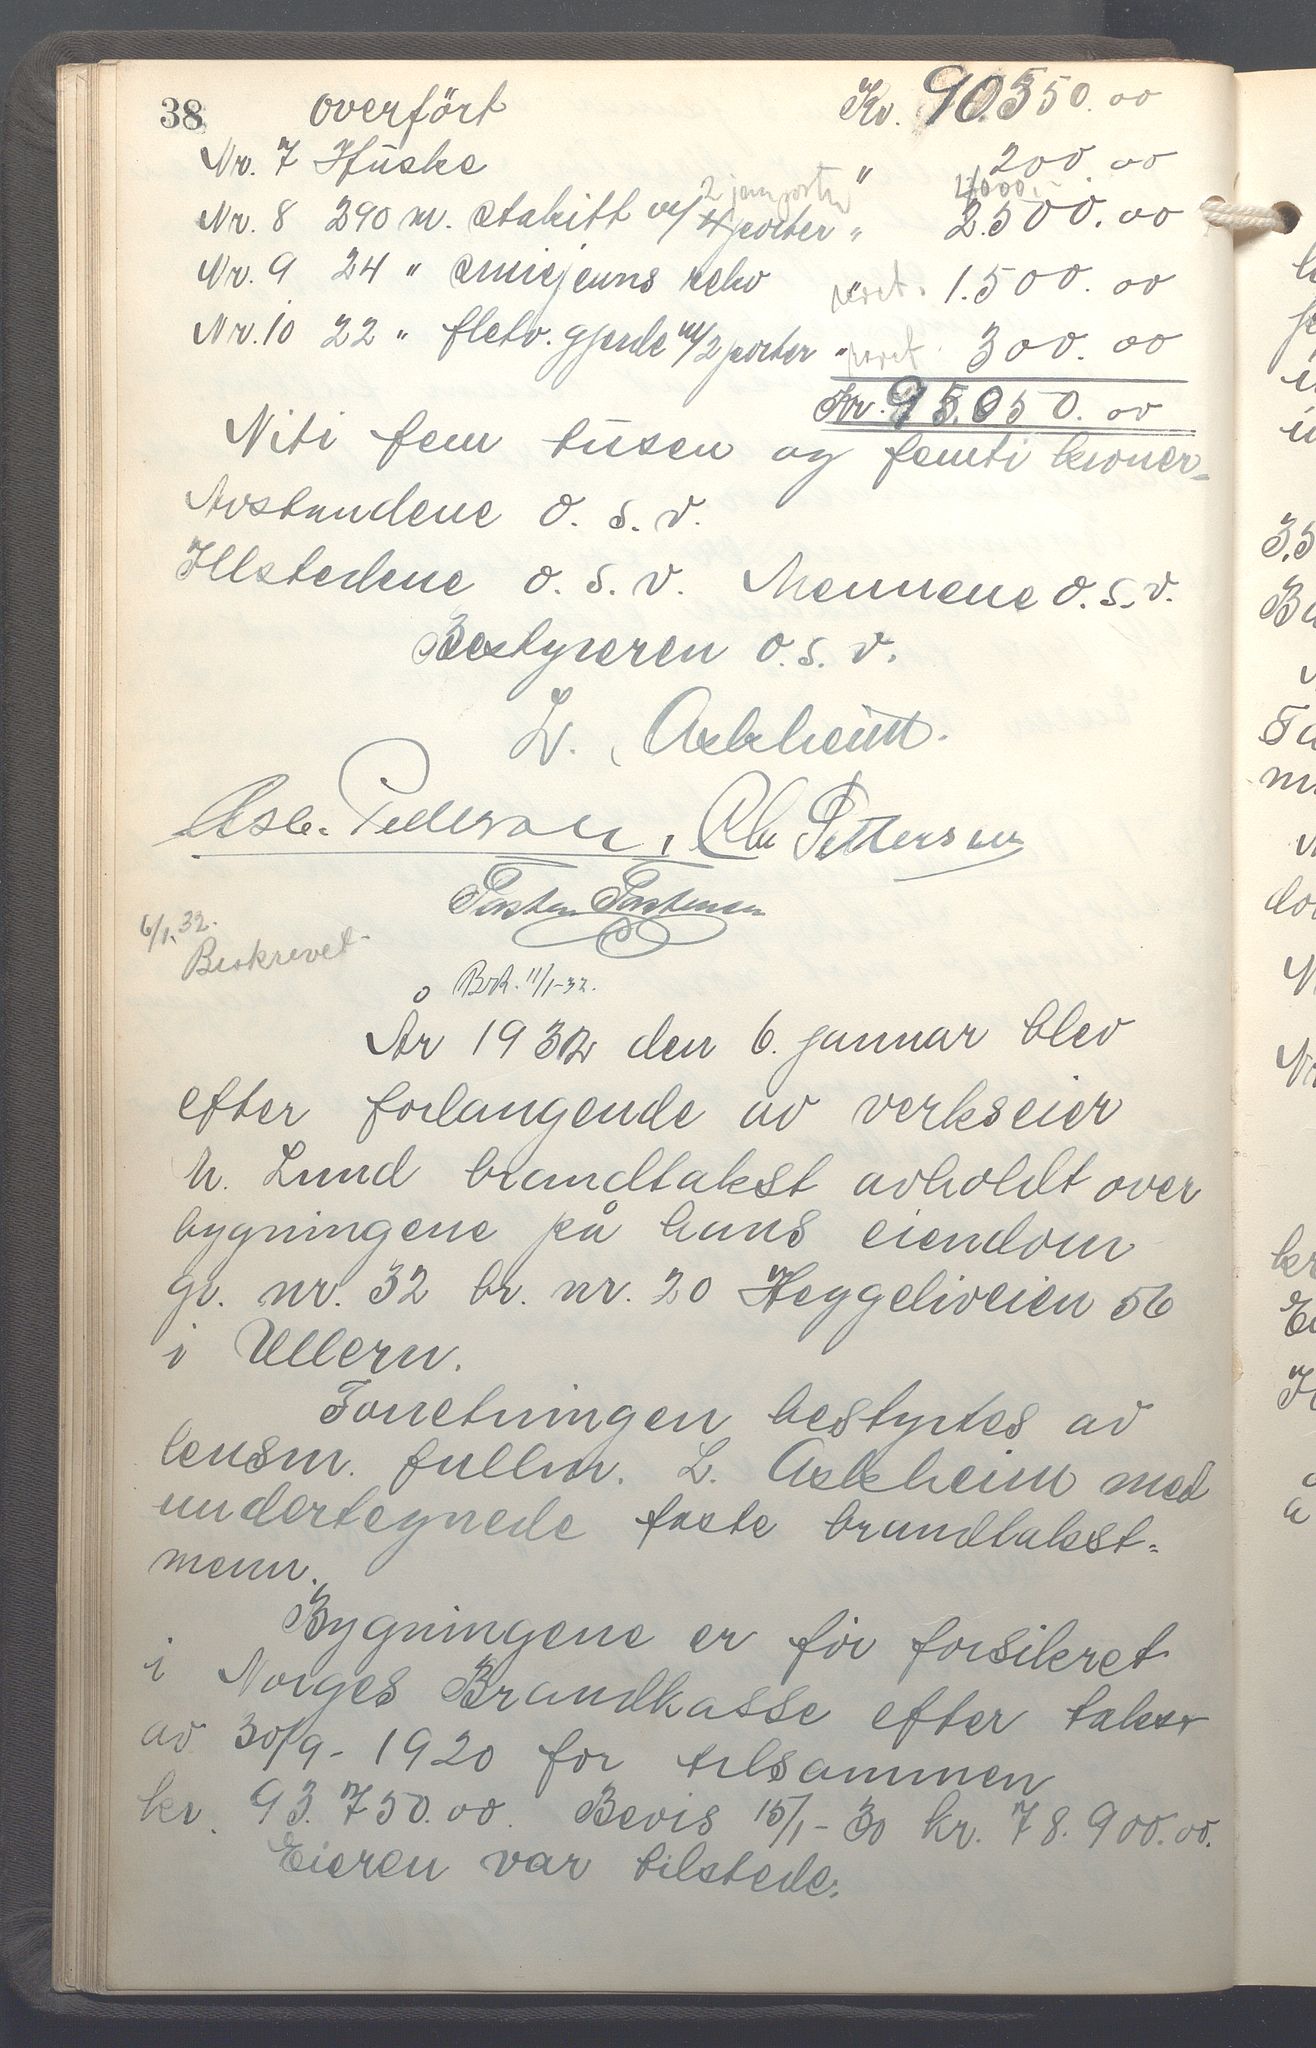 38 overført Kr. 90.550.00
Nr. 7 Huske " 200.00
2 jernporter 4000.-
Nr. 8 290 m. stakitt m/4 porter " 2.500.00
Nr. 9 24 " smiejerns rekv 1.500.00
Nr. 10 22 " fletv. gjerde m/2 porter " 300.00
Kr. 95.050.00
Niti fem tusen og femti kroner.
Avstandene o. s. v.
Ildstedene o. s. v. Mennene o. s. v.
Bestyreren o. s. v.
L. Askheim.
Asb. Pedersen, Chr Pettersen
Torsten Torstensen
6/1.32.
Beskrevet.
Besk. 11/1-32.
År 1932 den 6. januar blev
efter forlangende av verkseier
h. Lund brandtakst avholdt over
bygningene på hans eiendom
gr. nr. 32 br. nr. 20 Heggeliveien 56
i Ullern.
Forretningen bestyrtes av
lensm. fullm. L. Askheim med
undertegnede faste brandtakst=
menn.
Bygningene er før forsikret
i Norges Brandkasse efter takst
av 30/9-1920 for tilsammen
kr. 93.750.00. Bevis 15/1-30 kr. 78.900.00.
Eieren var tilstede.